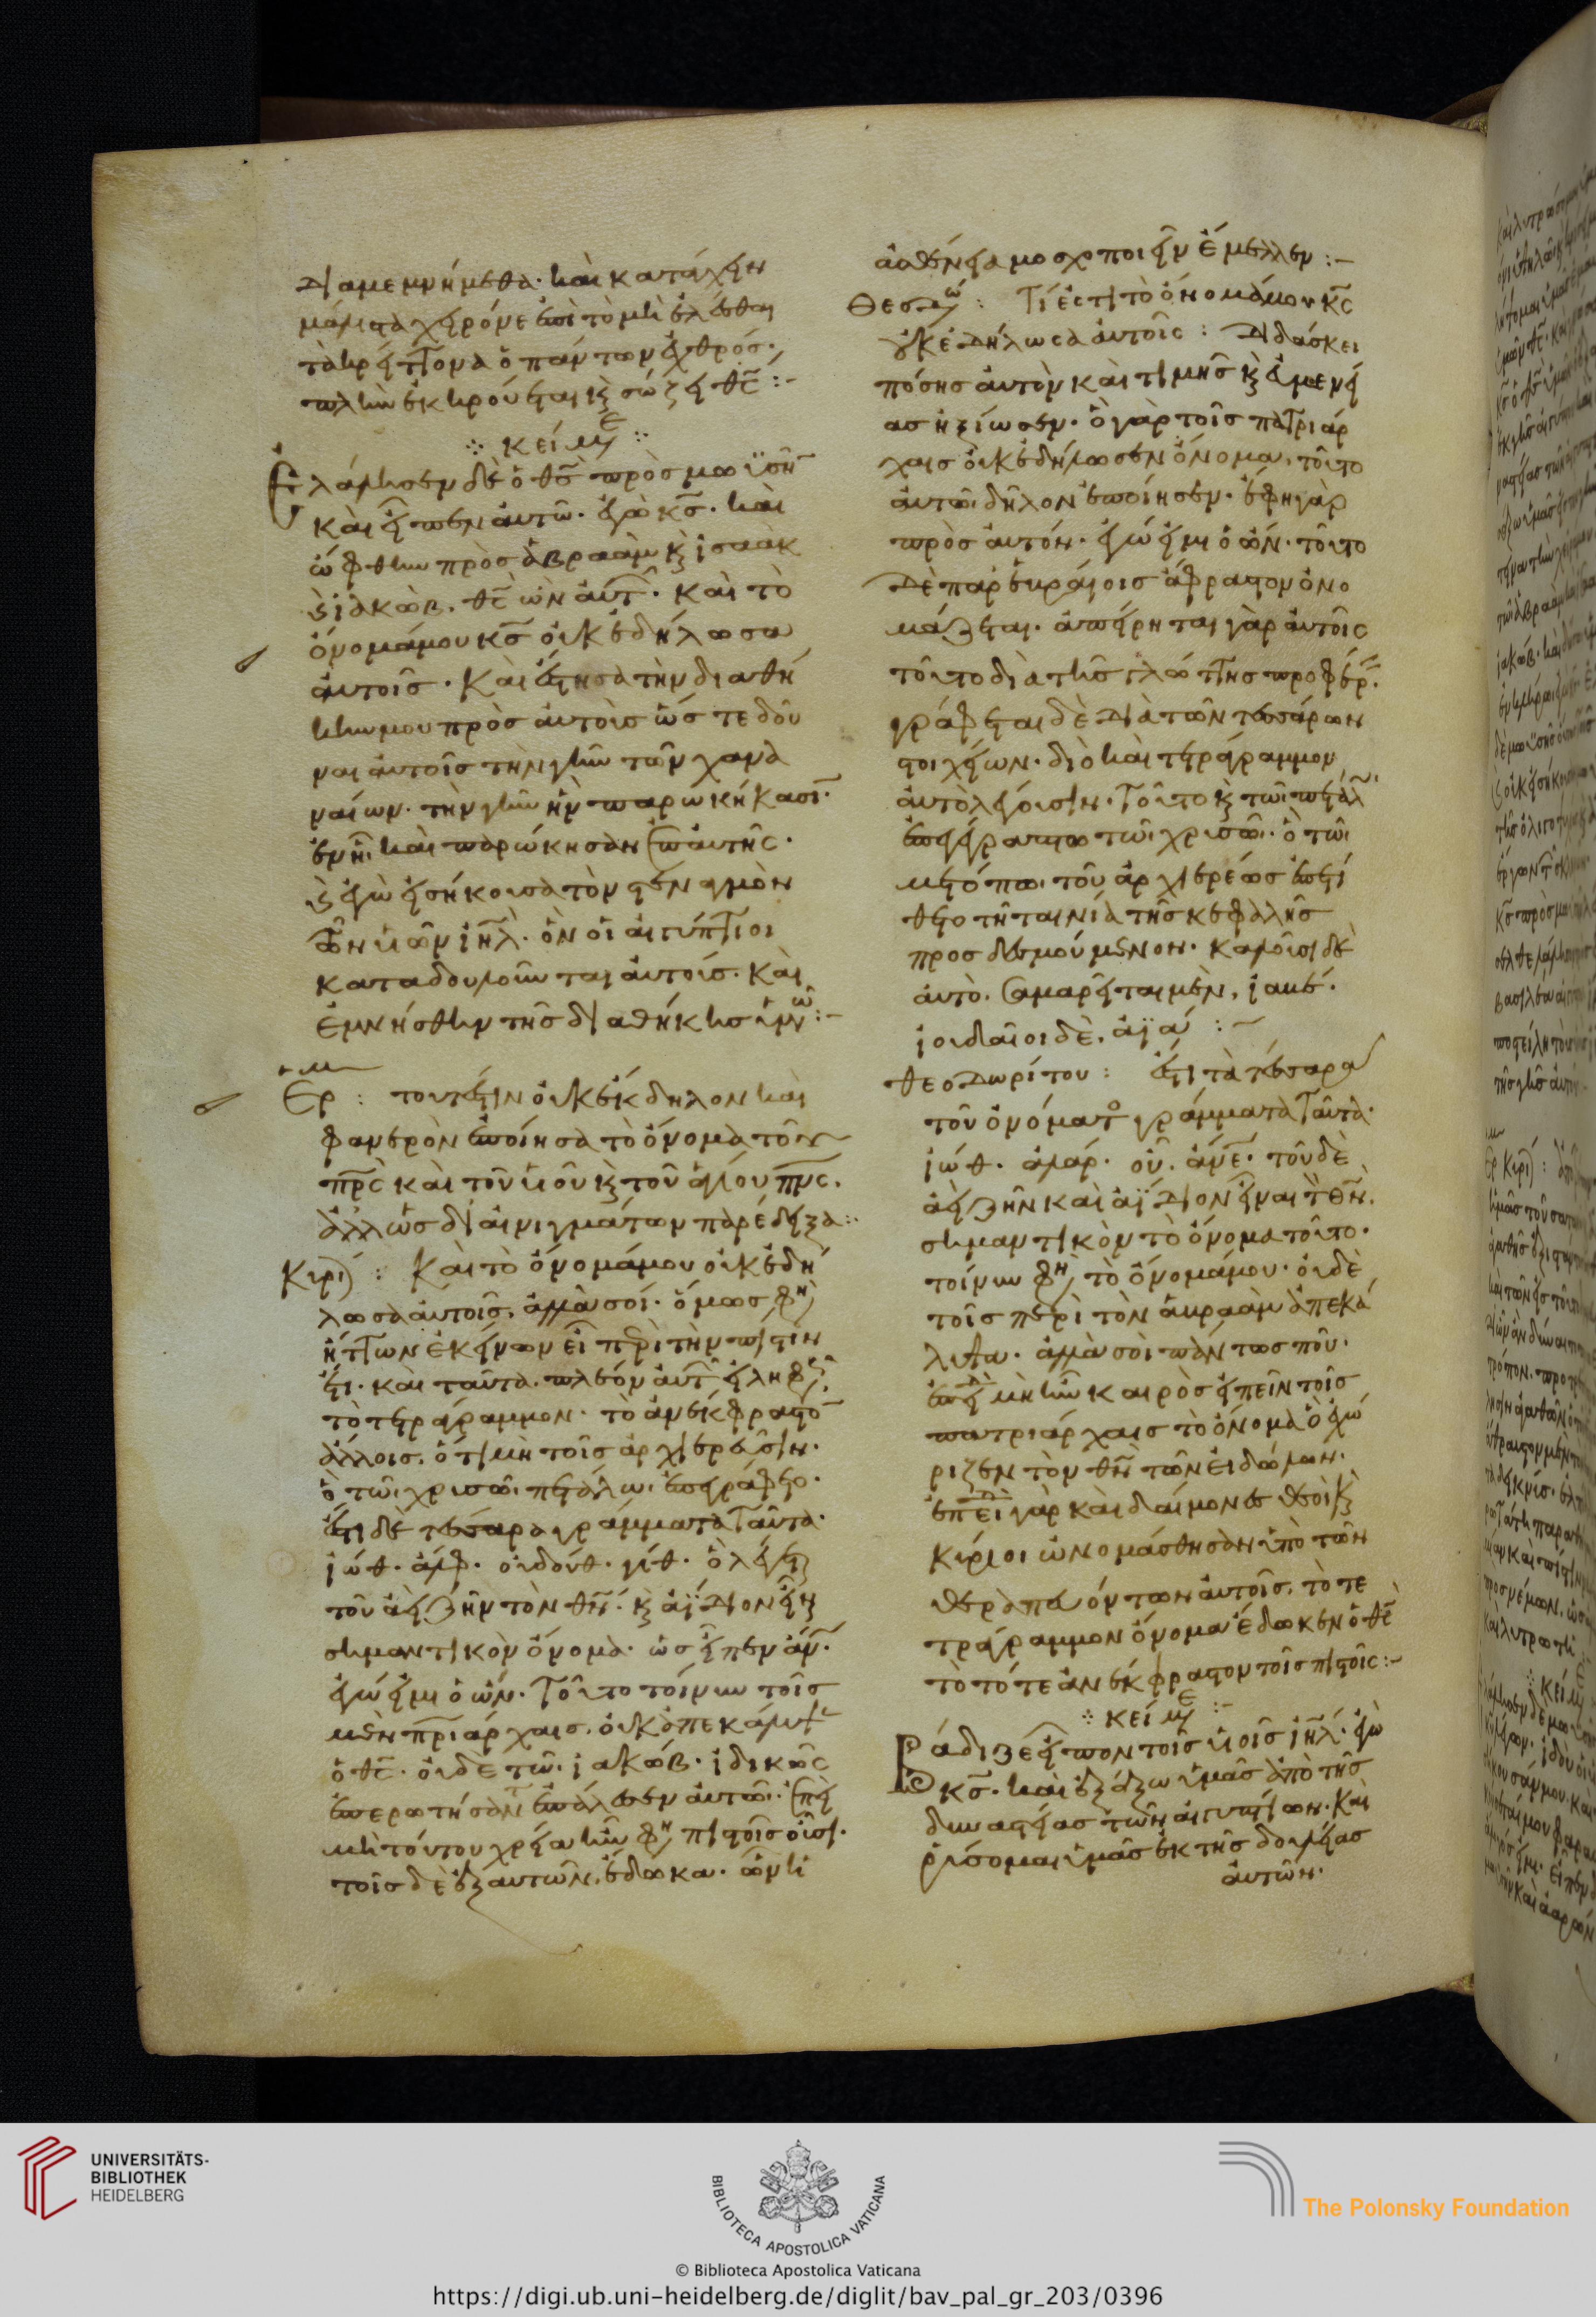 διαμεμνήμεθα· καὶ κατάγχειν
μάλιστα χειρόνε ἐπὶ τὸ μὴ ἑλέσθαι
τὰ κρείττονα ὁ πάντων ἐχθρός·
πλὴν ἐκκρούεται κ σώζει θς :-
κείμε
Ἐλάλησεν δὲ ὁ θς πρὸς μωϋσῆν
καὶ εἶπεν αὐτῶ· ἐγὼ κς· καὶ
ὤφθην πρὸς ἀβραὰμ κ ἰσαὰκ
κ ἰακὼβ· θς ὢν αὐτ· καὶ τὸ
ὄνομά μου κς οὐκ ἐδήλωσα
αὐτοῖς· Καὶ ἔστησα τὴν διαθή
κην μου πρὸς αὐτοὺς ὥς τε δοῦ
ναι αὐτοῖς τὴν γῆν τῶν χανα
ναίων· τὴν γῆν ἣν παρωκήκασι·
ἐν ἧ καὶ παρώκησαν ἐπ αὐτῆς·
κ ἐγὼ εἰσήκουσα τὸν στεναγμὸν
τῶν υἱῶν ιηλ· ὃν οἱ αἰγύπτιοι
καταδουλοῦνται αὐτούς· Καὶ
ἐμνήσθην τῆς διαθήκης ὑμῶν :-
Ερμ : τουτέστιν οὐκ ἔκδηλον καὶ
φανερὸν ἐποίησα τὸ ὄνομα τοῦ
πρς καὶ τοῦ υἱοῦ κ τοῦ ἁγίου πνς·
ἀλλ ὡς δι αἰνιγμάτων παρέδειξα :
Κυρι : Καὶ τὸ ὄνομά μου οὐκ ἐδή
λωσα αὐτοῖς· ἀλλὰ σοί· ὅμως φη
ἥττων ἐκείνων εἶ περὶ τὴν πίστιν
ἔτι· καὶ ταῦτα πλέον αὐτ εἴληφ
τὸ τετράγραμμον· τὸ ἀνέκφραστο
ἄλλοις· ὅτι μὴ τοῖς ἀρχιερεῦσιν·
ὃ τῶ χρυσῶ πετάλω ἐπεγράφετο·
ἔστι δὲ τέσσαρα γράμματα ταῦτα·
ἰώθ· ἀλφ· οὐδούθ· ηίθ· ὃ λέγετ
τοῦ ἀεὶ ζῆν τὸν θν· κ ἀΐδιον εἶν
σημαντικὸν ὄνομα· ὡς εἶπεν ἄν·
ἐγώ εἰμι ὁ ὤν· Τοῦτο τοίνυν τοῖς
μὲν πριάρχαις· οὐκ ἀπεκάλυψ
ὁ θς· οὐδὲ τῶ ἰακὼβ· ἰδικῶς
ἐπερωτήσαντι ἐπάλεσεν αὐτῶ· ἐπεὶ
μὴ τούτου χρεία ἦν φη πιστοῖς οὖσι·
τοῖς δὲ ἐξ αὐτῶν, ἔδωκα· ὧν ἡ
ἀσθένεια μοσχοποιεῖν ἔμελλεν :-
Θεοδω : Τί ἐστι τὸ ὄνομά μου κς
οὐκ ἐδήλωσα αὐτοῖς : Διδάσκει
πόσης αὐτὸν καὶ τιμῆς κ εὐμενεί
ας ἠξίωσεν· ὃ γὰρ τοῖς πατριάρ
χαις οὐκ ἐδήλωσεν ὄνομα· τοῦτο
αὐτῶ δῆλον ἐποίησεν· ἔφη γὰρ
πρὸς αὐτόν· ἐγώ εἰμι ὁ ὤν· τοῦτο
δὲ παρ ἑβραίοις ἄφραστον ὀνο
μάζεται· ἀπείρηται γὰρ αὐτοῖς
τοῦτο διὰ τῆς γλώττης προφέρ·
γράφεται δὲ διὰ τῶν τεσσάρων
στοιχείων· διὸ καὶ τετράγραμμον
αὐτὸ λέγουσιν· Τοῦτο κ τῶ πετάλ
ἐπεγέγραπτο τῶ χρυσῶ· ὃ τῶ
μετώπω τοῦ ἀρχιερέως ἐπετί
θετο τῆ ταινία τῆς κεφαλῆς
προσδεσμούμενον· Καλοῦσι δὲ
αὐτὸ· σαμαρεῖται μὲν, ἰαβέ·
ἰουδαῖοι δὲ, ἀϊά :-
θεοδωρίτου : ἔστι τὰ τέσσαρα
τοῦ ὀνόματος γράμματα ταῦτα·
ἰώθ· ἀλάφ· οὐ· ἀνε· τοῦ δὲ
ἀεὶ ζῆν καὶ ἀΐδιον εἶναι τ θν·
σημαντικὸν τὸ ὄνομα τοῦτο·
τοίνυν φη, τὸ ὄνομά μου· οὐδὲ
τοῖς περὶ τὸν ἀβραὰμ ἀπεκά
λυψα· ἀλλὰ σοὶ πάντως που·
ἐπειδὴ μὴ ἦν καιρὸς εἰπεῖν τοῖς
πατριάρχαις τὸ ὄνομα ὃ ἐχώ
ριζεν τὸν θν τῶν εἰδώλων·
ἐπειδὴ γὰρ καὶ δαίμονες θεοὶ κ
κύριοι ὠνομάσθησαν ὑπὸ τῶν
θεραπευόντων αὐτοῖς, τό τε
τράγραμμον ὄνομα ἔδωκεν ὁ θς
τὸ τότε ἀνέκφραστον τοῖς πιστοῖς :-
κείμε
Βάδιζε εἶπον τοῖς υἱοῖς ιηλ· ἐγὼ
κς· καὶ ἐξάξω ὑμᾶς ἀπὸ τῆς
δυναστείας τῶν αἰγυπτίων· Καὶ
ῥύσομαι ὑμᾶς ἐκ τῆς δουλείας
αὐτῶν·
UNIVERSITÄTS-
BIBLIOTHEK
HEIDELBERG
BIBLIOTECA APOSTOLICA VATICANA
The Polonsky Foundation
© Biblioteca Apostolica Vaticana
https://digi.ub.uni-heidelberg.de/diglit/bav_pal_gr_203/0396